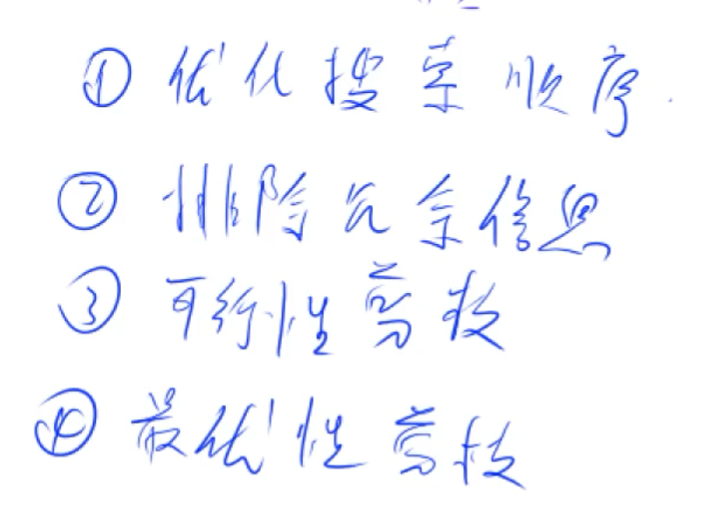 ① 优化搜索顺序
② 排除冗余信息
③ 可行性剪枝
④ 最优性剪枝